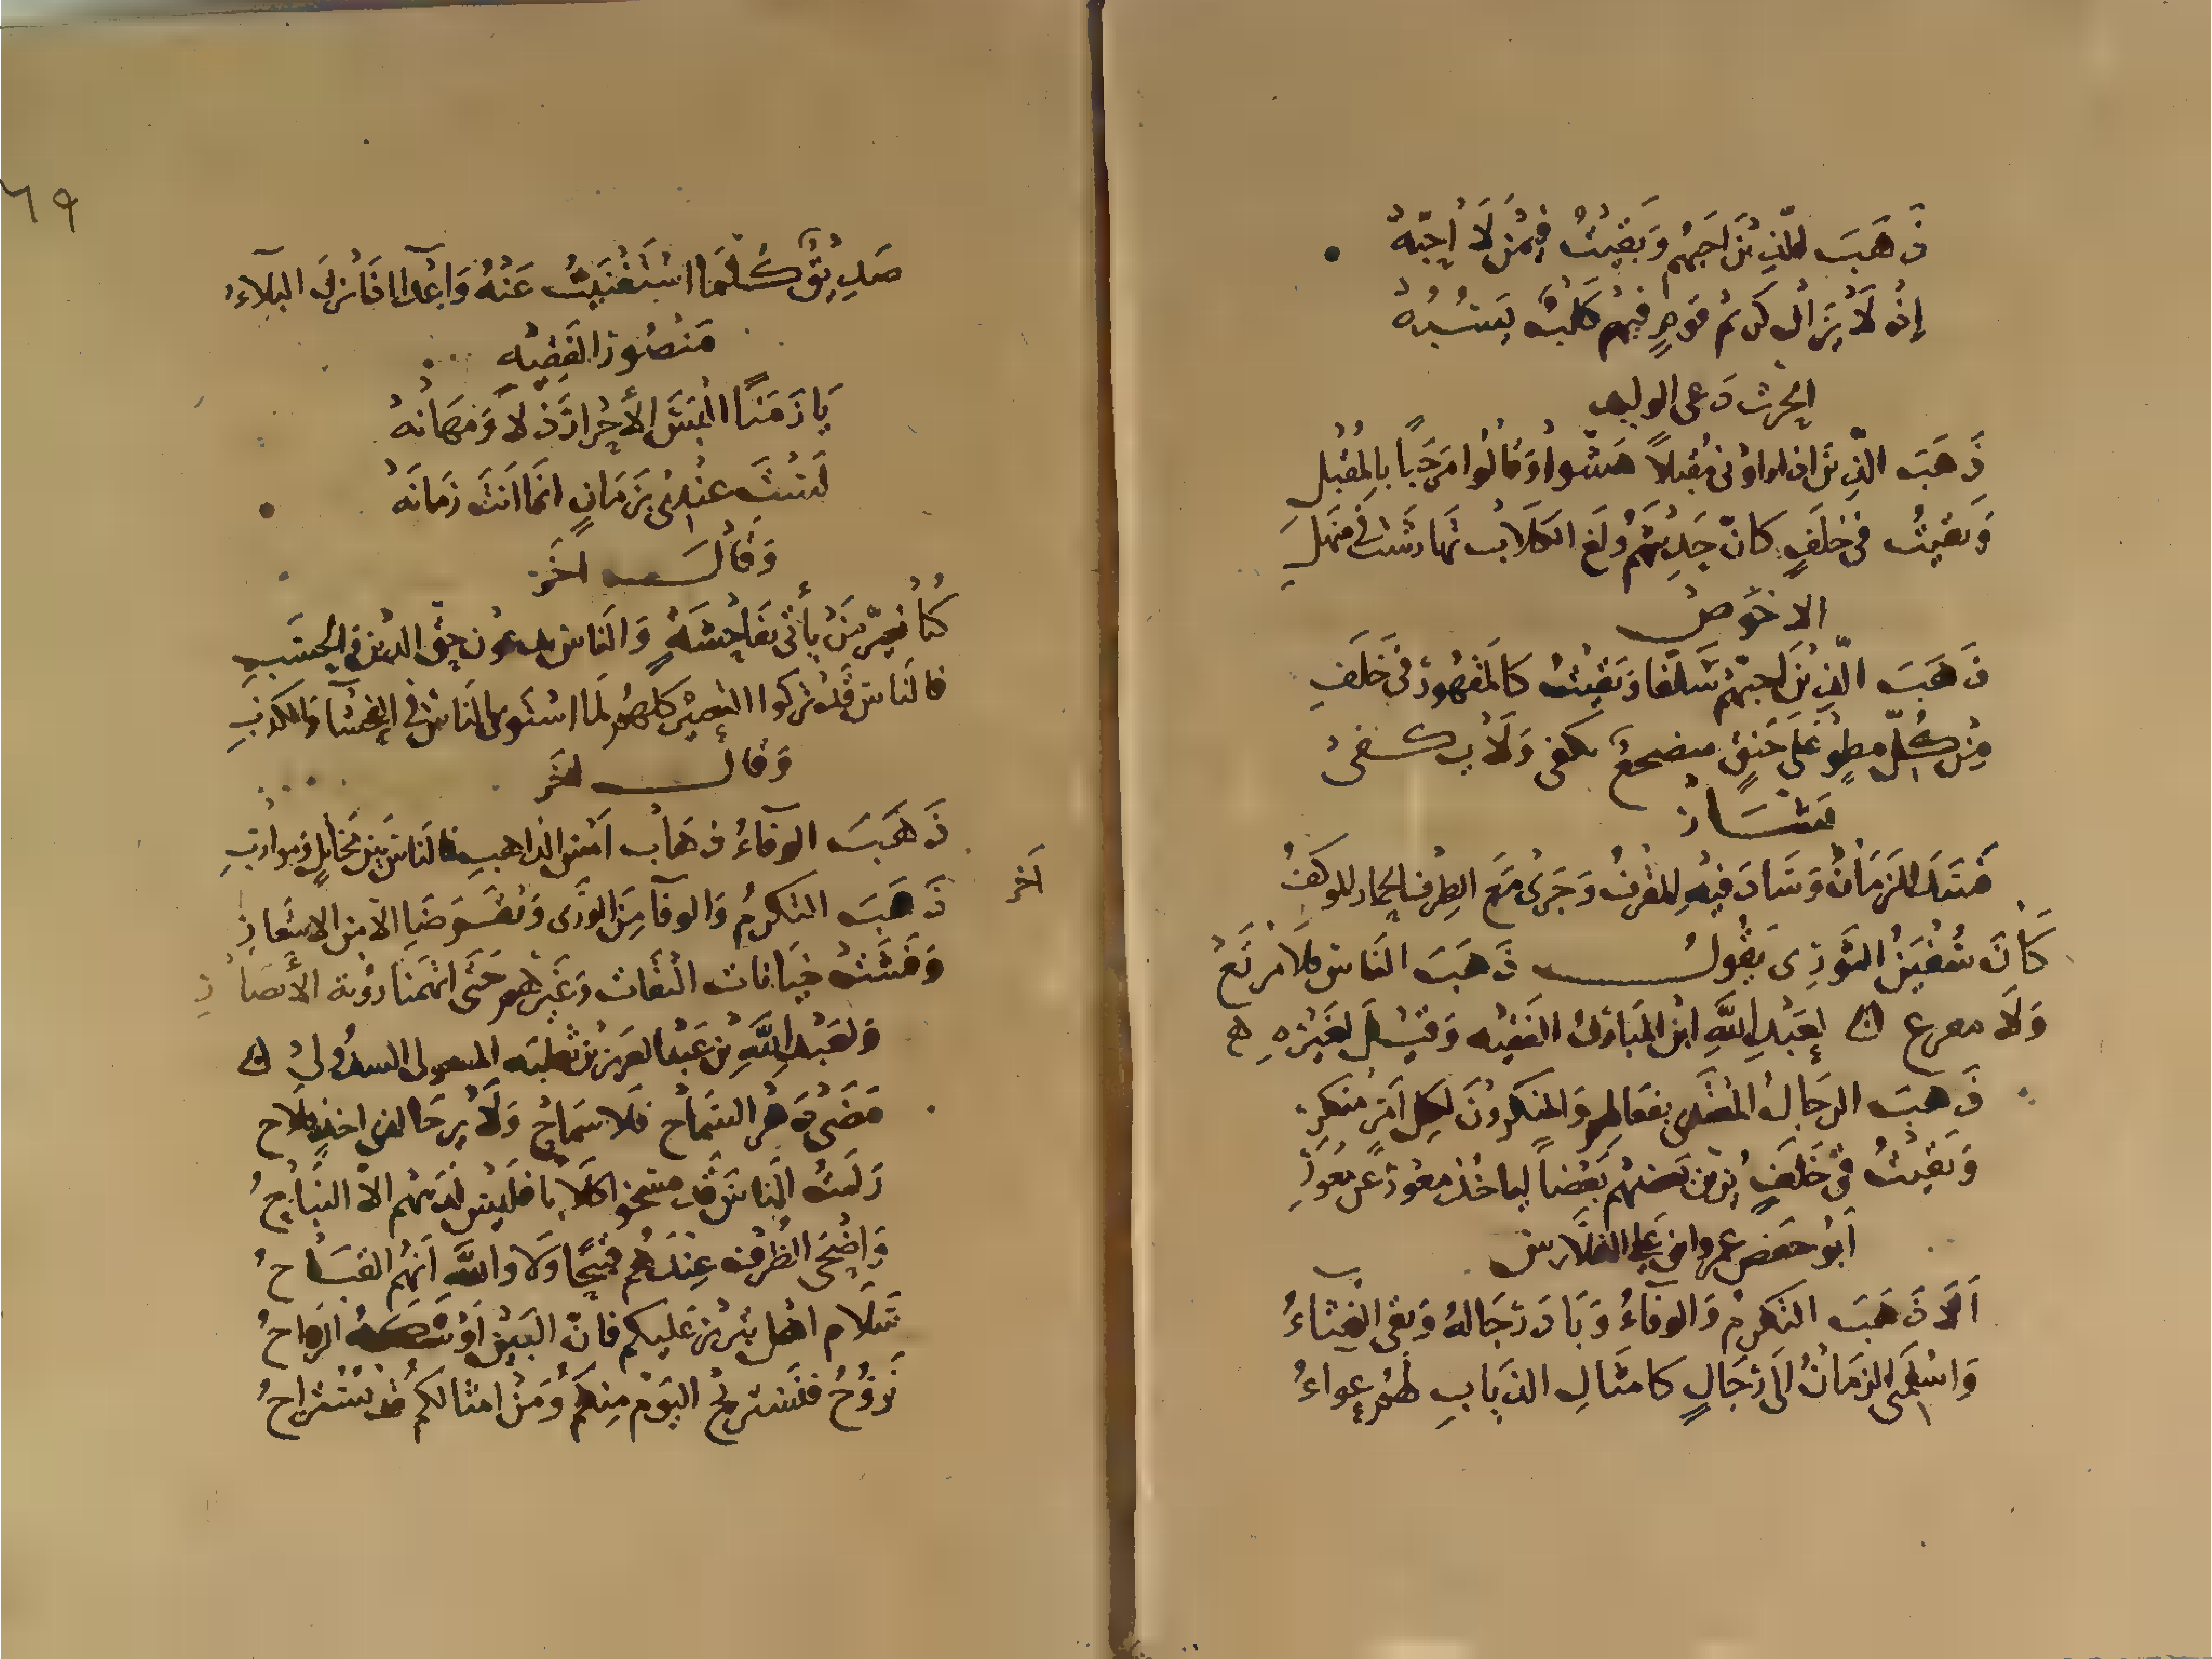 ذَهَبَ الَّذِينَ أُحِبُّهُم وَبَقِيتُ فِيمَنْ لَا أُحِبُّهُ
إِذْ لَا يَزَالُ كَرِيمُ قَوْمٍ فِيهِمْ كَلْبٌ يَسُبُّهُ
ذَهَبَ الَّذِينَ اذا راونى مُقبلاً هَشّوا وَقَالُوا مَرحَباً بِالمُقْبِلِ
وَبَقيتُ فى خَلَفٍ كَانَّ حَدِيثَهُم وَلَغ الكلاب تَهَارَشَت فى مَنهَل
الاحْوَص
ذَهَبَ الَّذِينَ احبّهُم سَلَفًا وَبَقِيتُ كَالمَقهُورِ فى خَلَفِ
مِنْ كُلّ مطوٍ عَلَى حَنَقٍ متضجع يكفى وَلَا يكفى
بَشَّار
فَسَدَ الزَمَانُ وَسَادَ فِيهِ المُقرفُ وَجَرَى مَعَ الطِرف الحمار الموكَفُ
كَانَ سُفْيَنُ الثَّورِى يَقُولُ ذَهَبَ النَّاس فَلَا مَرتَعُ
وَلَا مفزع لِعَبْدِ اللَّهِ ابن المُبَارَكْ الفَقيه وَقِيلَ لِغَيْرِهِ
ذَهَبَ الرِجَالُ المُقتَدى بِفَعَالِهِم وَالمنكرونَ لِكُلِ أَمْرٍ مُنكَرِ
وَبَقيْتُ فى خَلَفٍ يُزَيّن بَعضهُم بَعْضاً لياخُذ معور عَن مُعْوِرِ
أَبُو حَفص عمرو ابن عَلى الفَلَّاس
أَلَا ذَهَبَ التَكرمُ وَالوَفَاءُ وَبَادَ رِجَالهُ وَبَقى الغُثَاءُ
وَاسْلَمَنى الزَمَانُ الَى رِجَالٍ كَامثَالِ الذيَابِ لَهُم عُواءُ
٦٩
صَدِيقٌ كُلَّمَا اسْتَغْنَيْتُ عَنْهُ وَاعْدَاءٌ اذَا نَزلَ البَلَاءُ
مَنْصُور الفَقِيه
يَا زَمَنًا الْبَسَ الأَحْرَارَ ذُلاً وَمَهَانَهُ
لَسْتَ عنْدِى بِزَمَانٍ انَّمَا انتَ زَمَانَهُ
وَقَالَ اخَر
كُنَّا نُعَيّر مَنْ يَأتى بفَاحِشَةٍ وَالنَاس يدعون حَقّ الدين فى الحَسَبِ
فالنَاس قَد تَركوا التعيير كلهُم لَما اسْتَوى النَاسُ فى الفَحْشَا وَالكذبِ
وَقَالَ اخَر
ذَهَبَ الوَفَاءُ ذهَابَ امْس الذاهبِ فالنَاسُ بَيْنَ مخَاتِلٍ وَموارِبِ
اخر
ذَهَبَ التكرمُ وَالوفَا مِنَ الوَرَى وَتَقَوَضَا الا مِن الاشعَارِ
وَفَشَتْ خِيَانَات الثّقَات وَغَيْرهُم حَتَّى اتّهَمنَا رؤية الأبصَارِ
وَلعَبْدِ اللَّهِ بْنِ عَبْد العَزيز بْن ثَعلبَه
مَضَى دَهْرُ السَّمَاحِ فَلا سَمَاحٌ وَلَا يُرجَا لَدَى احَدٍ فَلاح
رَايتُ النَاسَ قَد مسخوا كلَابا فَليس لَدَيهم الا النُبَاحُ
وَاضْحَى الظرْف عِنْدَهُم قبيحًا وَلَا وَاللَّهِ انَّهُم القبَاحُ
سَلَام اهْل تبريز عَليكم فَانّ البَيْنَ اوْشَكَهُ الرَواحُ
نَرُوحُ فَنَستَريحُ اليَوْم مِنكُم وَمَنْ امثالكم قد يُستَرَاحُ